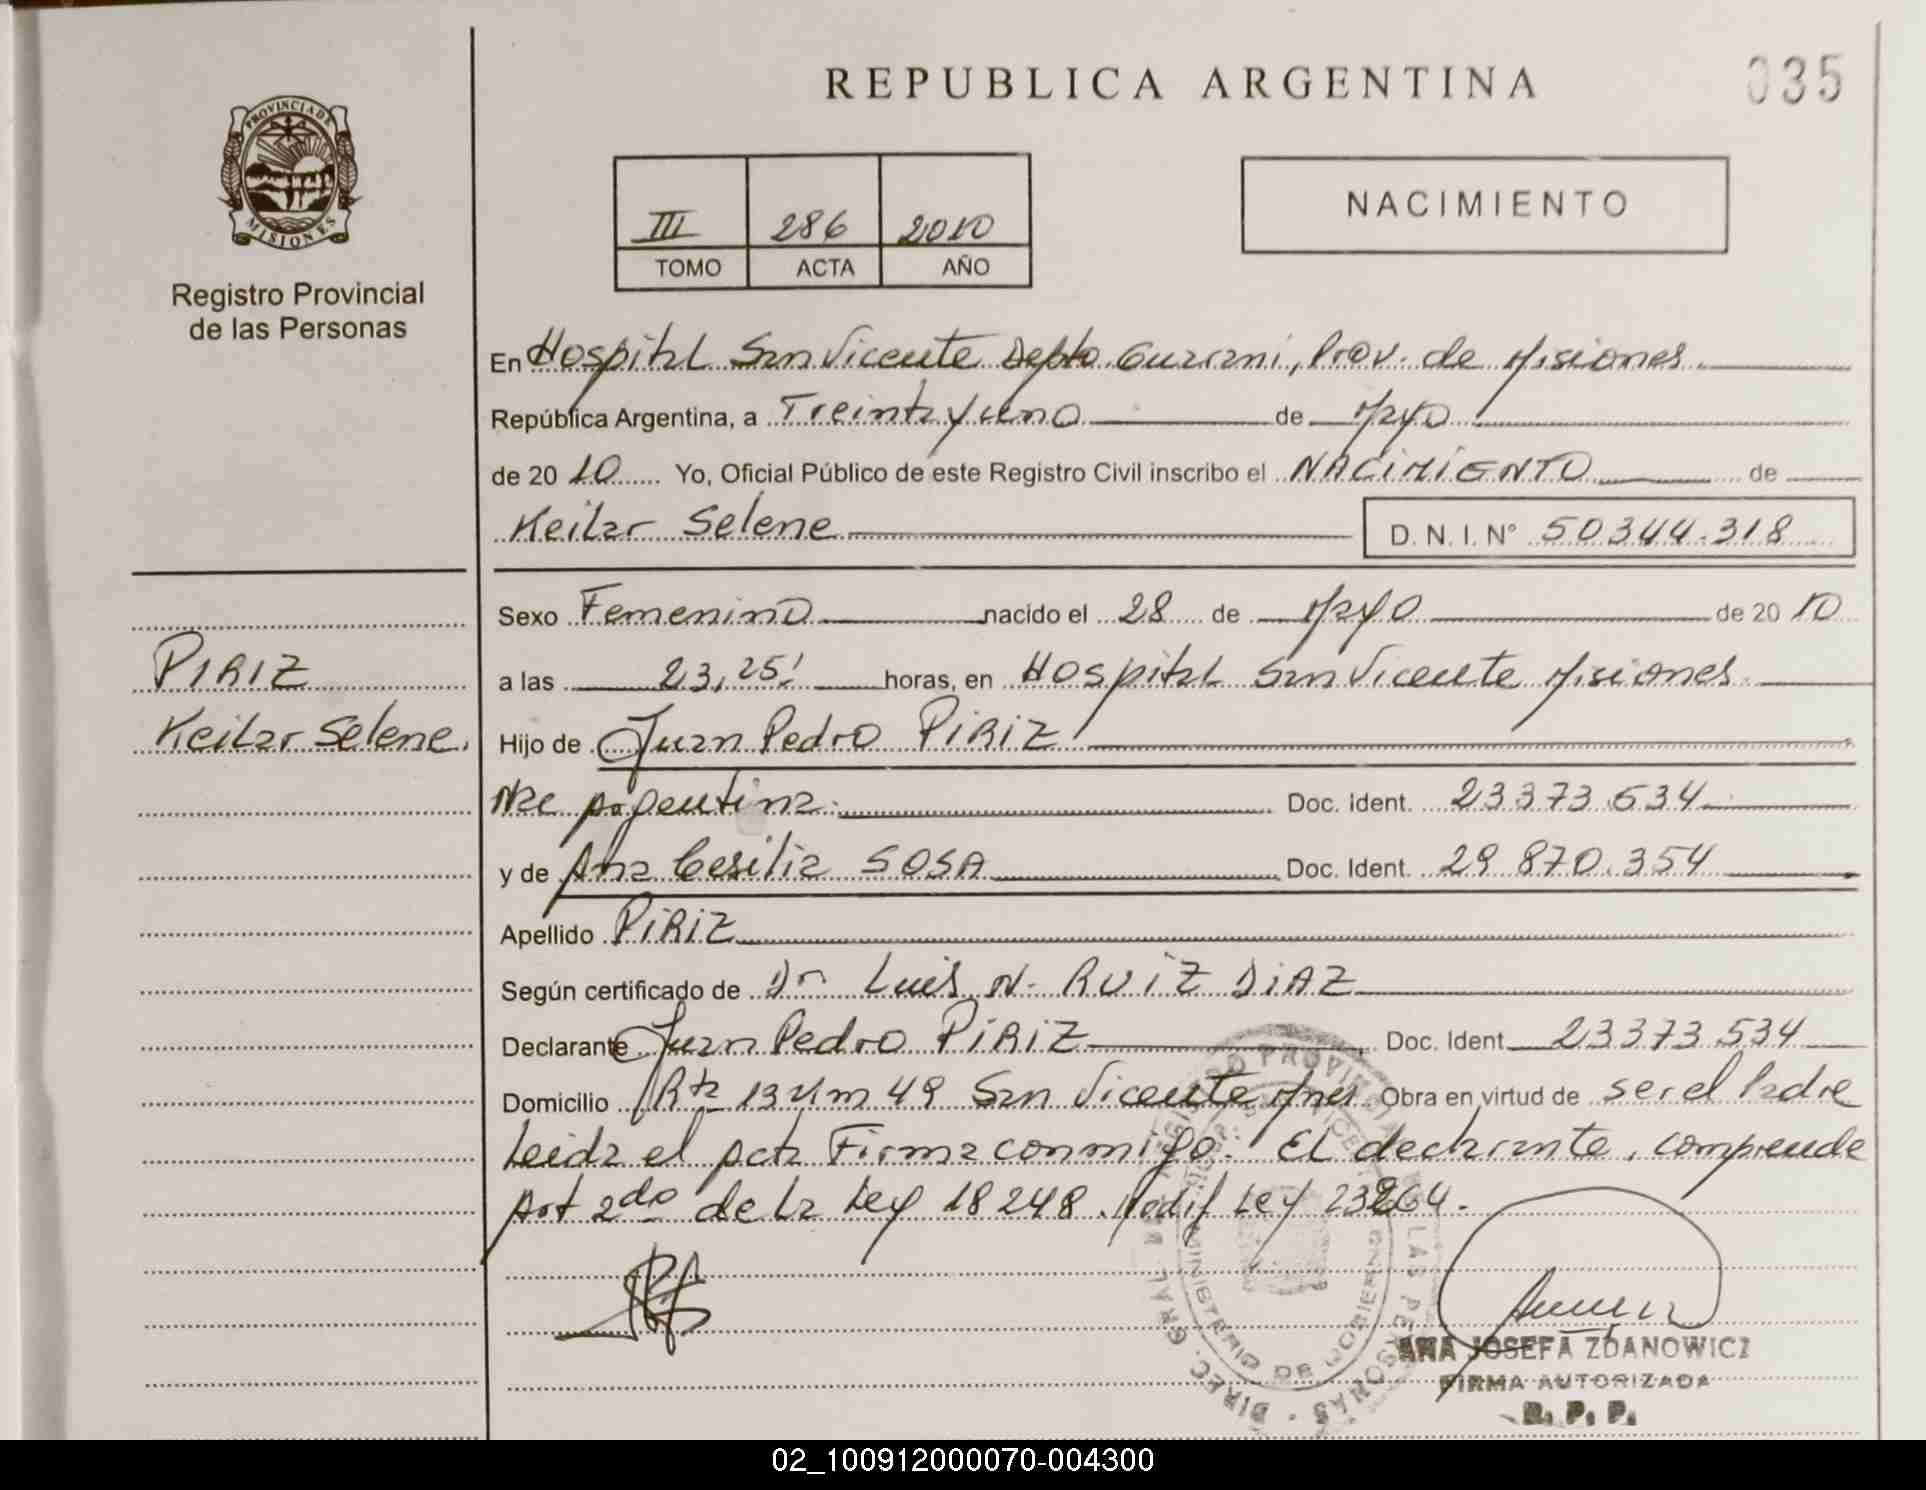 REPUBLICA ARGENTINA
035
PROVINCIA DE
MISIONES
Registro Provincial
de las Personas
III 286 2010
TOMO ACTA AÑO
NACIMIENTO
En Hospital San Vicente Depto Guarani, Prov. de Misiones
República Argentina, a Treinta y uno de Mayo
de 20 10 Yo, Oficial Público de este Registro Civil inscribo el NACIMIENTO de
Keilar Selene D. N. I. N° 50344.318
Sexo Femenino nacido el 28 de Mayo de 20 10
PIRIZ
Keilar Selene.
a las 23,25' horas, en Hospital San Vicente Misiones
Hijo de Juan Pedro PIRIZ
Nac Argentina. Doc. Ident. 23373.634
y de Ana Cesilia SOSA Doc. Ident. 29.870.354
Apellido PIRIZ
Según certificado de Dr Luis N. RUIZ DIAZ
Declarante Juan Pedro PIRIZ Doc. Ident. 23373.534
Domicilio Rta 13 Km 49 San Vicente Mnes Obra en virtud de ser el Padre
Leida el acta Firma conmigo. El declarante, comprende
Art 2do de la Ley 18248. Modif Ley 23264.
MINISTERIO DE GOBIERNO
DIREC. GRAL.
LAS PERSONAS
ANA JOSEFA ZDANOWICZ
FIRMA AUTORIZADA
R. P. P.
02_100912000070-004300